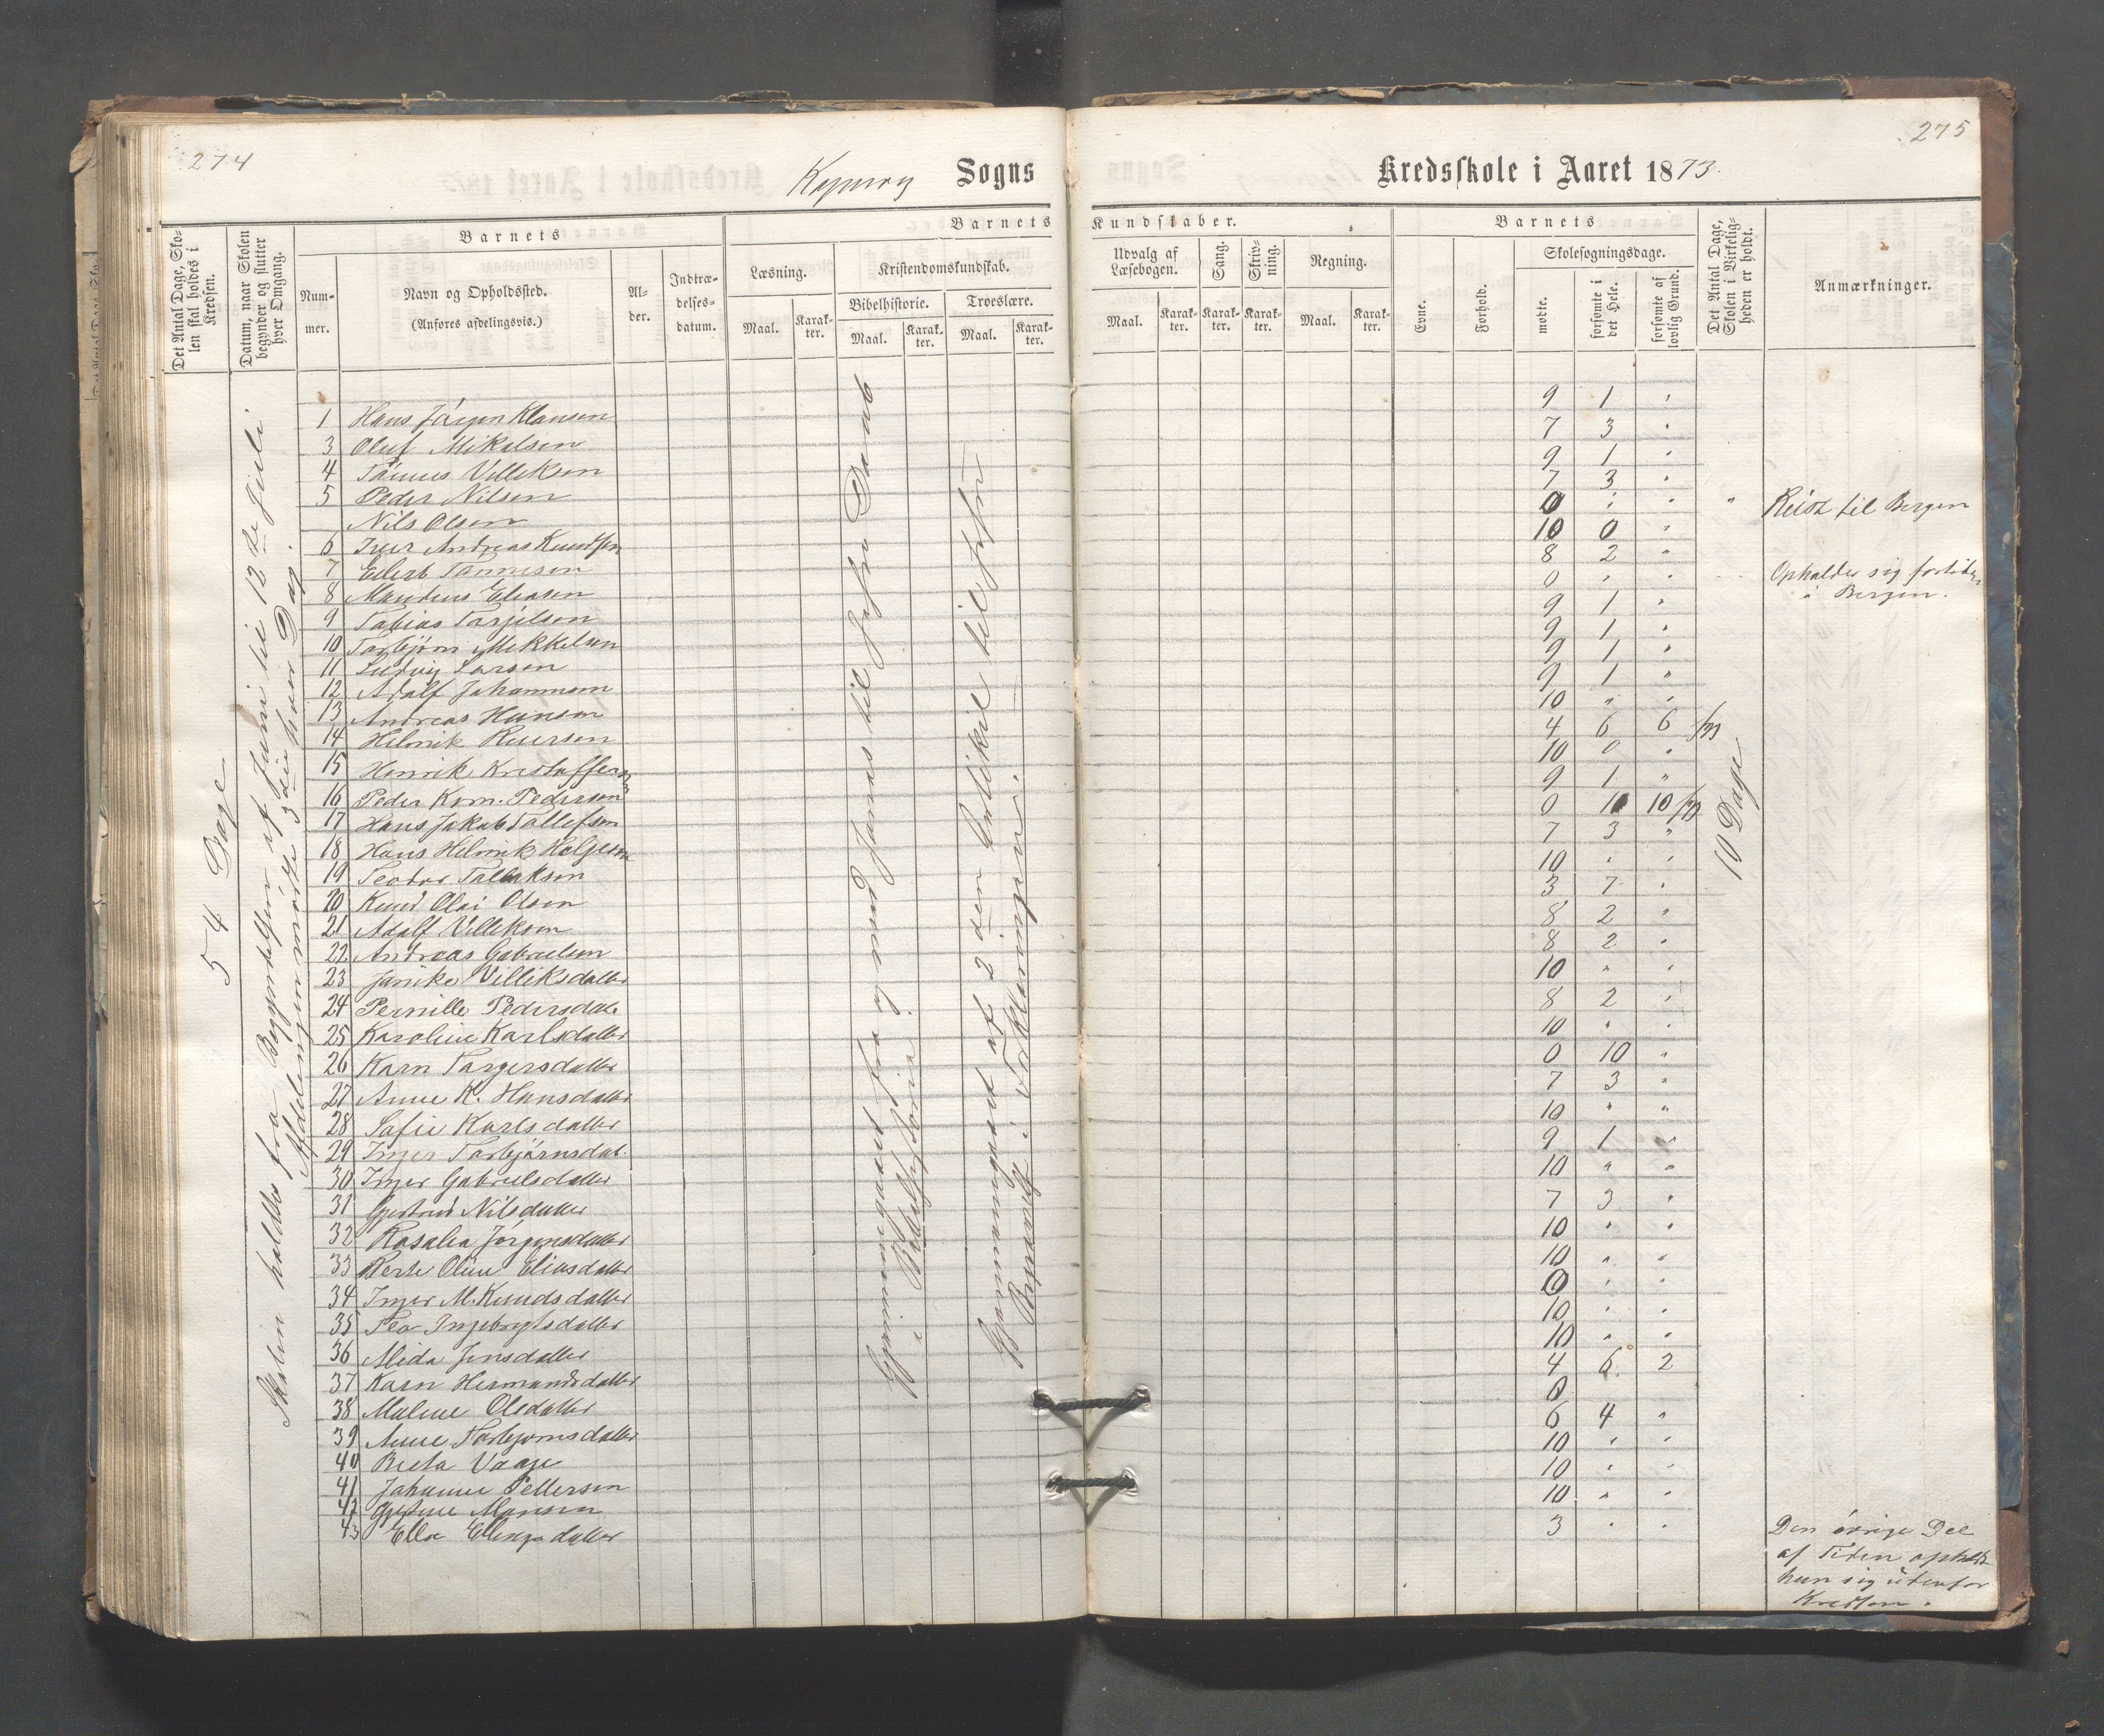 274
275
Sogns
Kredsskole i Aaret 1873.
Det Antal Dage, Sko-
len skal holdes i
Kredsen.
Datum, naar Skolen
begynder og slutter
hver Omgang.
Barnets
Num-
mer.
Navn og Opholdssted.
(Anføres afdelingsvis.)
Al-
der.
Indtræ-
delses-
datum.
Barnets
Læsning.
Maal.
Karak-
ter.
Kristendomskundskab.
Bibelhistorie.
Maal.
Karak-
ter.
Troeslære.
Maal.
Karak-
ter.
Kundskaber.
Udvalg af
Læsebogen.
Maal.
Karak-
ter.
Sang.
Karak-
ter.
Skriv-
ning.
Karak-
ter.
Regning.
Maal.
Karak-
ter.
Barnets
Evne.
Forhold.
Skolesøgningsdage.
mødte.
forsømte i
det Hele.
forsømte af
lovlig Grund.
Det Antal Dage,
Skolen i Virkelig-
heden er holdt.
Anmærkninger.
54 Dage
Skolen holdtes fra Begyndelsen af Juni til 12te Juli
Afdelingen mødte 3die hver Dag.
Gjennemgaaet fra og med Jonas til Jesu Daab
i Bibelhistorie
Gjennemgaaet af 2den Artikel til
i Forklaringen.
10 Dage
1 Hans Jørgen Klausen 9 1 "
3 Oluf Mikalsen 7 3 "
4 Tønnes Villiksen 9 1 "
5 Peder Nilsen 7 3 "
Nils Olsen 0 " " " Reist til Bergen
6 Iver Andreas Knudsen 10 0 "
7 Eilert Tønnesen 8 2 "
8 Mandius Eliasen 0 " " Opholder sig fortiden
i Bergen.
9 Tobias Torjilsen 9 1 "
10 Torbjørn Mekkelsen 9 1 "
11 Ludvig Larsen 9 1 "
12 Adolf Johannesen 9 1 "
13 Andreas Hansen 10 " "
14 Helmik Iversen 4 6 6
15 Henrik Kristoffersen 10 0 "
16 Peder Korn. Pedersen 9 1 "
17 Hans Jakob Tollefsen 0 10 10
18 Hans Helmik Helgesen 7 3 "
19 Teodor Tollaksen 10 " "
20 Knud Olai Olsen 3 7 "
21 Adolf Villiksen 8 2 "
22 Andreas Gabrielsen 8 2 "
23 Janike Villiksdatter 10 " "
24 Pernille Pedersdatr 8 2 "
25 Karoline Karlsdatter 10 " "
26 Karn Torgersdatter 0 10 "
27 Anne K. Hansdatter 7 3 "
28 Sofie Karlsdatter 10 " "
29 Inger Torbjørnsdat. 9 1 "
30 Inger Gabrielsdatter 10 " "
31 Gjertrud Nilsdatter 7 3 "
32 Rosalia Jørgensdatter 10 " "
33 Berte Oline Eliasdatter 10 " "
34 Inger M. Knudsdatter 0 " "
35 Tea Ingebrigtsdatter 10 " "
36 Alida Jensdatter 10 " "
37 Karn Hermandsdatter 4 6 2
38 Maline Olsdatter 0
39 Anne Torbjørnsdatter 6 4 "
40 Berta Vaage 10 " "
41 Johanne Pettersen 10 " "
42 Monsen 10 " "
43 Ella Ellingsdatter 3 " " Den øvrige Del
af Tiden opholdt
hun sig udenfor
Kredsen.